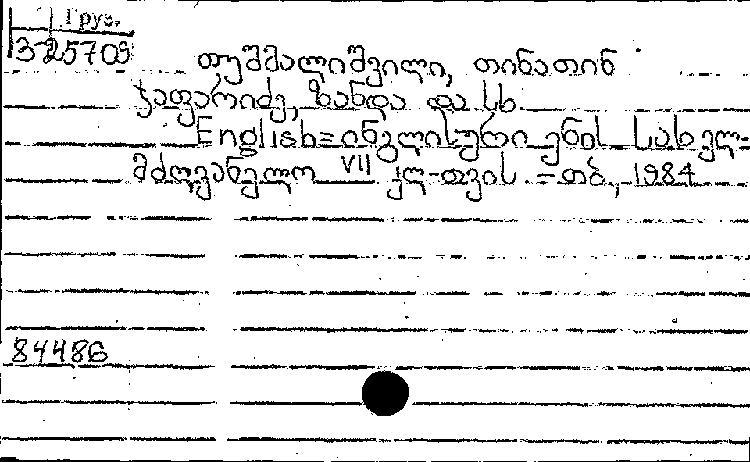 Груз.
3-25709
თუშმალიშვილი, თინათინ
ჯაფარიძე, ზანდა და სხ.
English=ინგლისური ენის სახელ-
მძღვანელო VII კლ-თვის.-თბ., 1984
84486